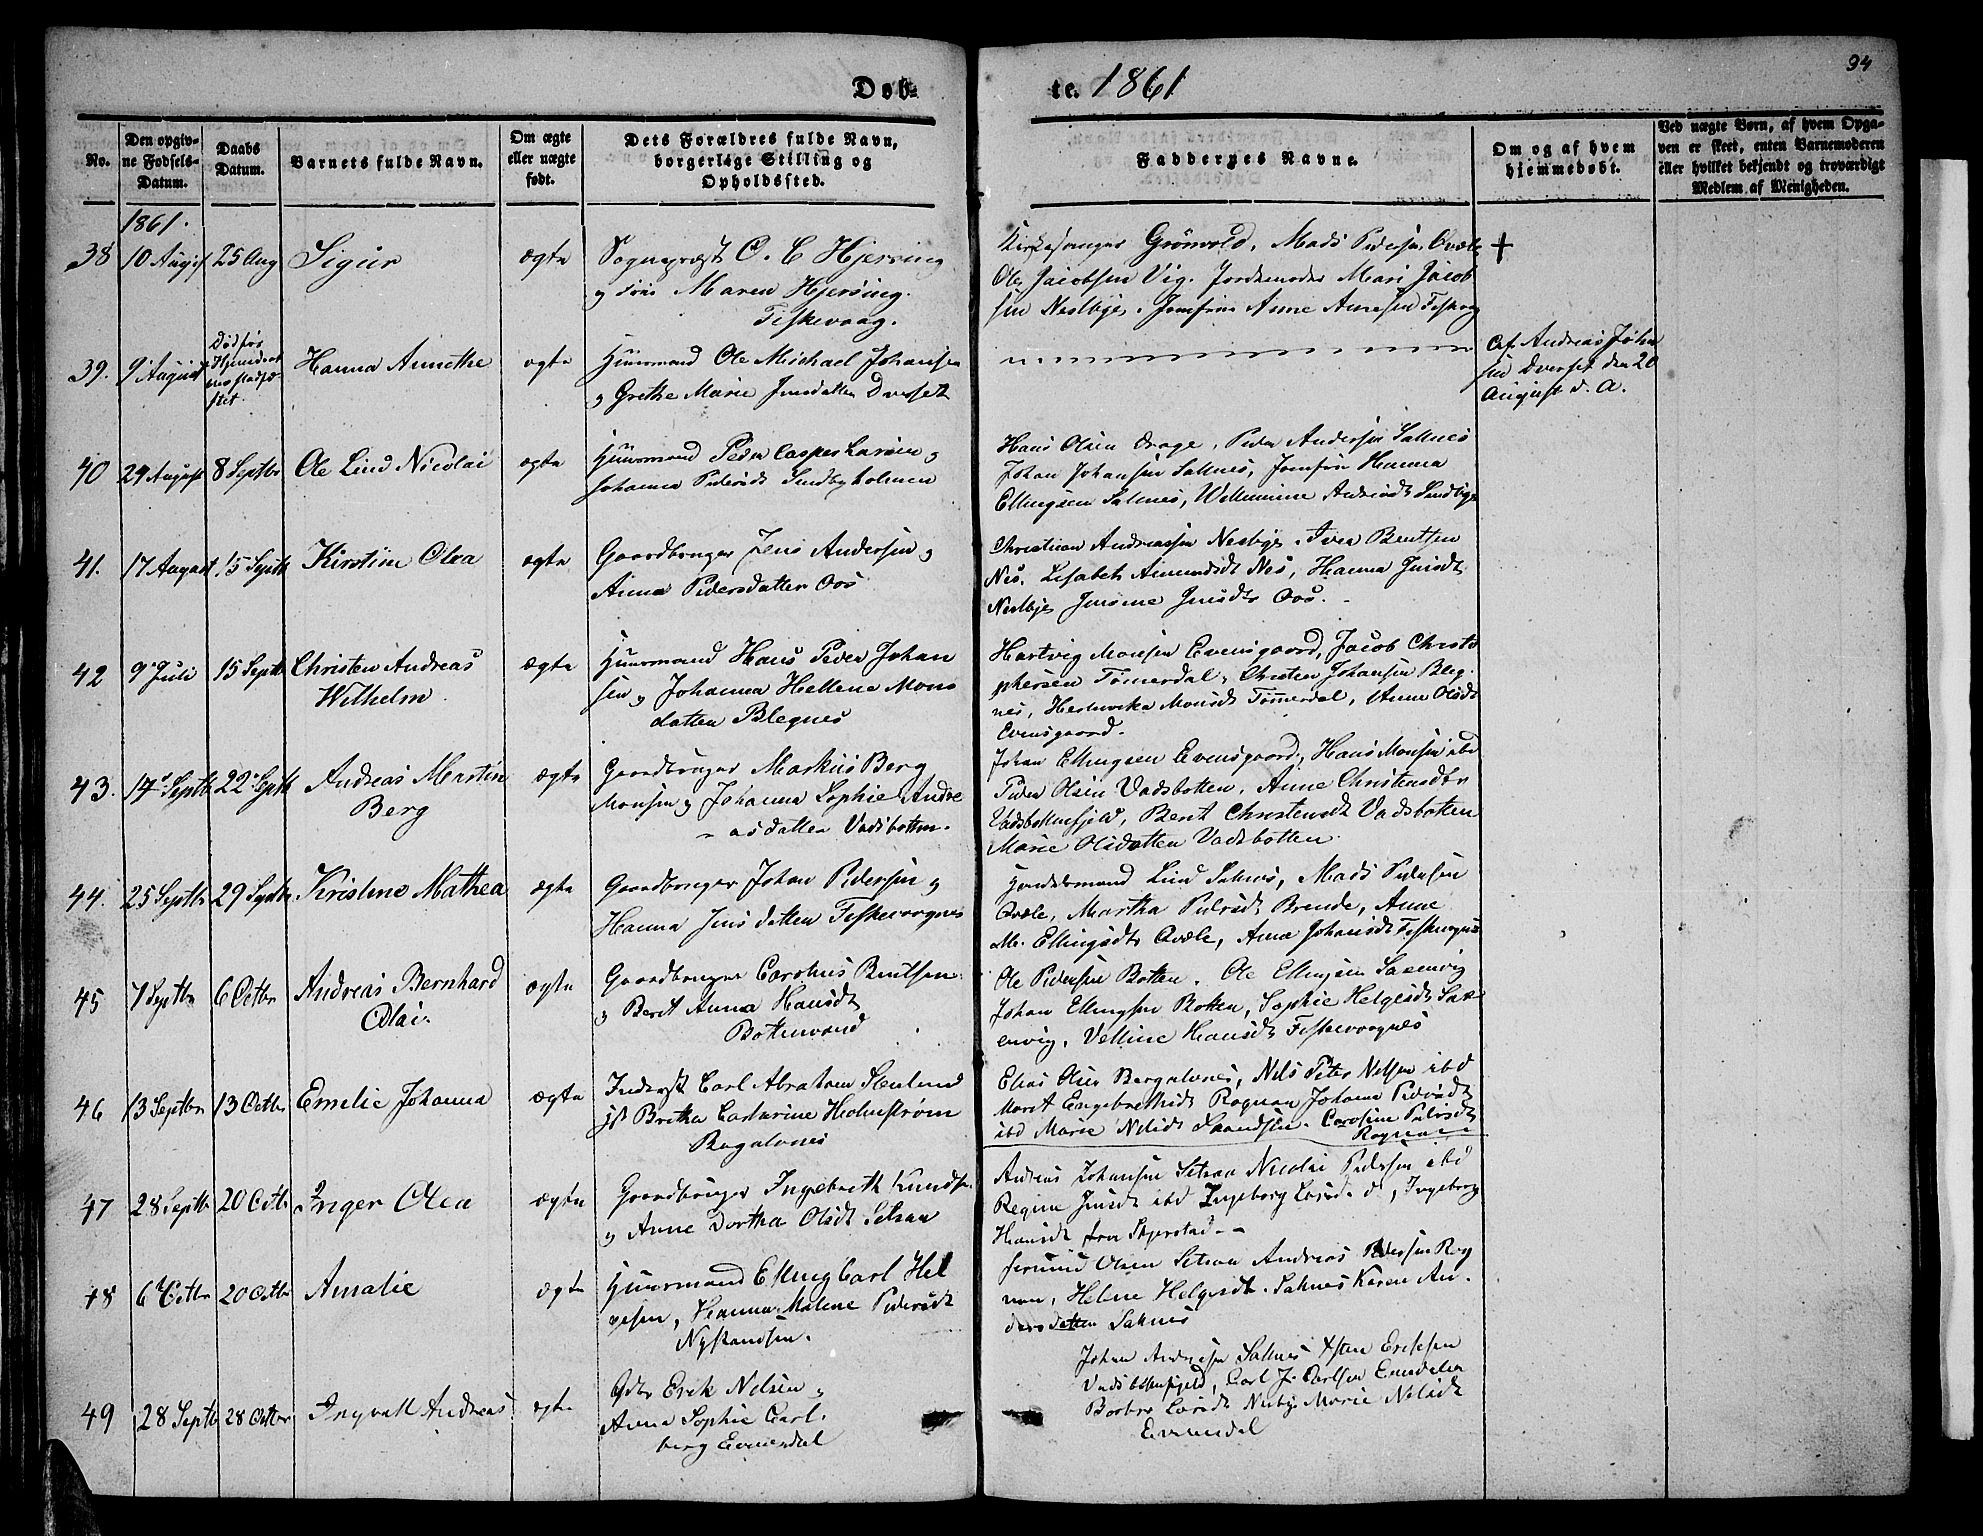 94
Døb-
te. 1861
No.
Den opgiv-
ne Fødsels-
Datum.
Daabs
Datum.
Barnets fulde Navn.
Om ægte
eller uægte
født.
Dets Forældres fulde Navn,
borgerlige Stilling og
Opholdssted.
Faddernes Navne.
Om og af hvem
hjemmedøbt.
Ved uægte Børn, af hvem Opga-
ven er skeet, enten Barnemoderen
eller hvilket bekjendt og troværdigt
Medlem af Menigheden.
1861.
38 10 August 25 Aug Sigur ægte
Sognepræst O. C Hjersing
Maren Hjersing.
Fiskevaag.
Kirkesanger Grönvold, Mads Pedersen Qvæle
Ole Jacobsen Vig. Jordemoder Mari Jacob
sen Nestbye. Jomfru Anne Arnesen
39. 9 August Hanna Annethe ægte
Huusmand Ole Michael Johansen
og Grethe Marie Jensdatter Dverset
Af Andreas Johan
sen Dverset den 20
August d. A.
40 24 August 8 Septbr Ole Lind Nicolai ægte
Huusmand Peder Casper Larsen og
Johanna Pedersdt Sundbyholmen
Hans Olsen Drage, Peder Andersen Saltnes
Johan Johansen Saltnes, Jomfru Hanna
Ellingsen Saltnes,
41. 17 August 15 Septbr Kirstine Olea ægte
Gaardbruger Jens Andersen og
Anna Pedersdatter Oos
Christian Andreassen Nestbye. Iver Bentsen
Nes. Lisabeth Amundsdt Nes, Hanna Jensdt
Nestbye Jensine Jensdtr Oos.
42 9 Juli 15 Septbr Christen Andreas
Wilhelm ægte
Huusmand Hans Peder Johan
sen og Johanna Hellene Mons
datter Blegnes
Hartvig Monsen Evensgaard, Jacob Christo
phersen Tömerdal, Christen Johansen Bleg
nes, Monsdt Tömerdal, Anne Olsdt
Evensgaard.
43. 17 Septbr 22 Septbr Andreas Martin
Berg ægte
Gaardbruger Markus Berg
Monsen og Johanna Sophie Andre
asdatter Vadsbotten.
Johan Ellingsen Evensgaard, Hans Monsen ibd
Peder Olsen Vadsbotten, Anne Christensdtr
Vadsbottenfjeld, Berit Christensdt Vadsbotten
Marie Olsdatter Vadsbotten.
44. 25 Septbr 29 Septbr Kristine Mathea ægte
Gaardbruger Johan Pedersen og
Hanna Jensdatter Fiskevaagnes
Lind Saltnes, Mads Pedersen
Qvæle, Martha Pedersdt Brende, Anne
M. Ellingsdtr Qvæle, Anna Johansdt Fiskvagnes
45 7 Septbr 6 Octbr Andreas Bernhard
Olai. ægte
Gaardbruger Carolius Bentsen
og Berit Anna Hansdt
Botnvand
Ole Pedersen Botten. Ole Ellingsen Saxenvig
Johan Ellingsen Botten, Sophie Helgesdt Sax
envig, Velline Hansdt Fiskevaagnes
46 13 Septbr 13 Octbr Emilie Johanna ægte
Inderst Carl Abraham
Catharine Holmström
Elias Olsen Nils Peter Nilsen ibd
Marit Engebrethsdt Rognan Johanna Pedersdt
ibd Marie Nilsdt Caroline Pedersdt
Rognan
47 28 Septbr 20 Octbr Inger Olea ægte
Gaardbruger Ingebreth Knudsen
og Anne Dorthea Olsdt Setsaa
Andreas Johansen Setsaa Nicolai Pedersen ibd
Regine Jensdt ibd Ingeborg Larsdt d°, Ingeborg
Hansdt fra Skjerstad.
48 6 Octbr 20 Octbr Amalie ægte
Huusmand Elling Carl Hel
gesen, Hanna Malene Pedersdt
Nystadsen.
Olsen Setsaa Andreas Pedersen Rog
nan, Helene Helgesdt. Saltnes Karen An
dersdatter Saltnes
49 28 Septbr 28 Octbr Ingvall Andreas ægte
Gdbr Erik Nilsen og
Anna Sophie Carl
berg Evenesdal
Johan Andersen Saltnes Ericksen
Vadsbottenfjeld, Carl J. Carlsen
Larsdt Nestby Marie Nilsdt